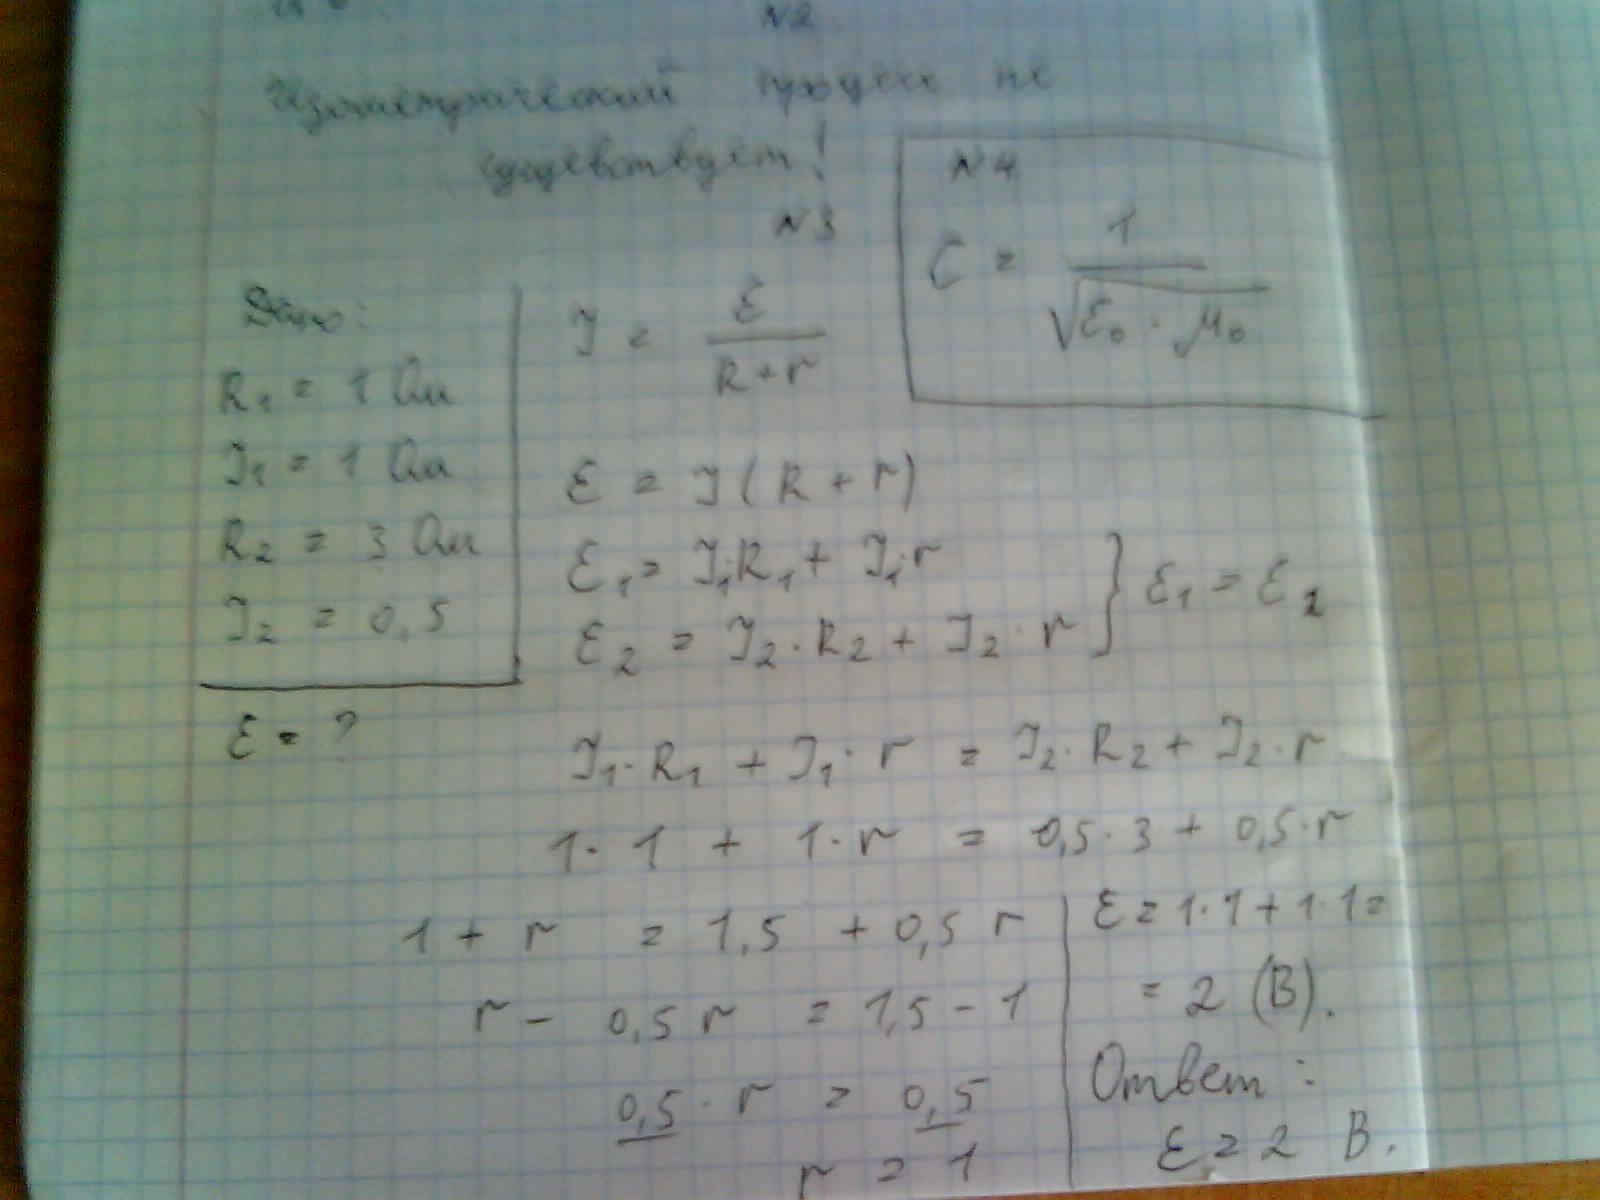 N2
Изометрический процесс не
существует!
N3
Дано:
R₁ = 1 Ом
I₁ = 1 Ом
R₂ = 3 Ом
I₂ = 0,5
ε = ?
I = ε / (R + r)
N4
C = 1 / √(ε₀ · μ₀)
ε = I (R + r)
ε₁ = I₁·R₁ + I₁·r
ε₂ = I₂·R₂ + I₂·r } ε₁ = ε₂
I₁·R₁ + I₁·r = I₂·R₂ + I₂·r
1·1 + 1·r = 0,5·3 + 0,5·r
1 + r = 1,5 + 0,5 r
r - 0,5 r = 1,5 - 1
0,5 · r = 0,5
r = 1
ε = 1·1 + 1·1 =
= 2 (В).
Ответ:
ε = 2 В.